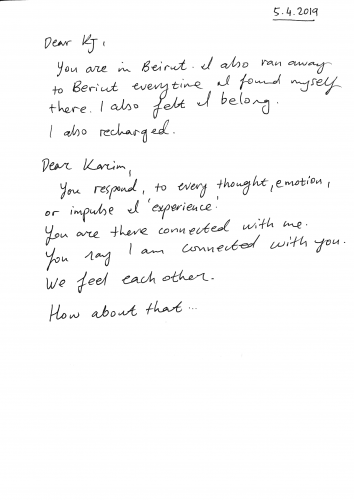 5.4.2019
Dear KJ,
You are in Beirut. I also ran away
to Beriut everytime I found myself
there. I also felt I belong.
I also recharged.
Dear Karim,
You respond, to every thought, emotion,
or impulse I 'experience'.
You are there connected with me.
You say I am connected with you.
We feel each other.
How about that...